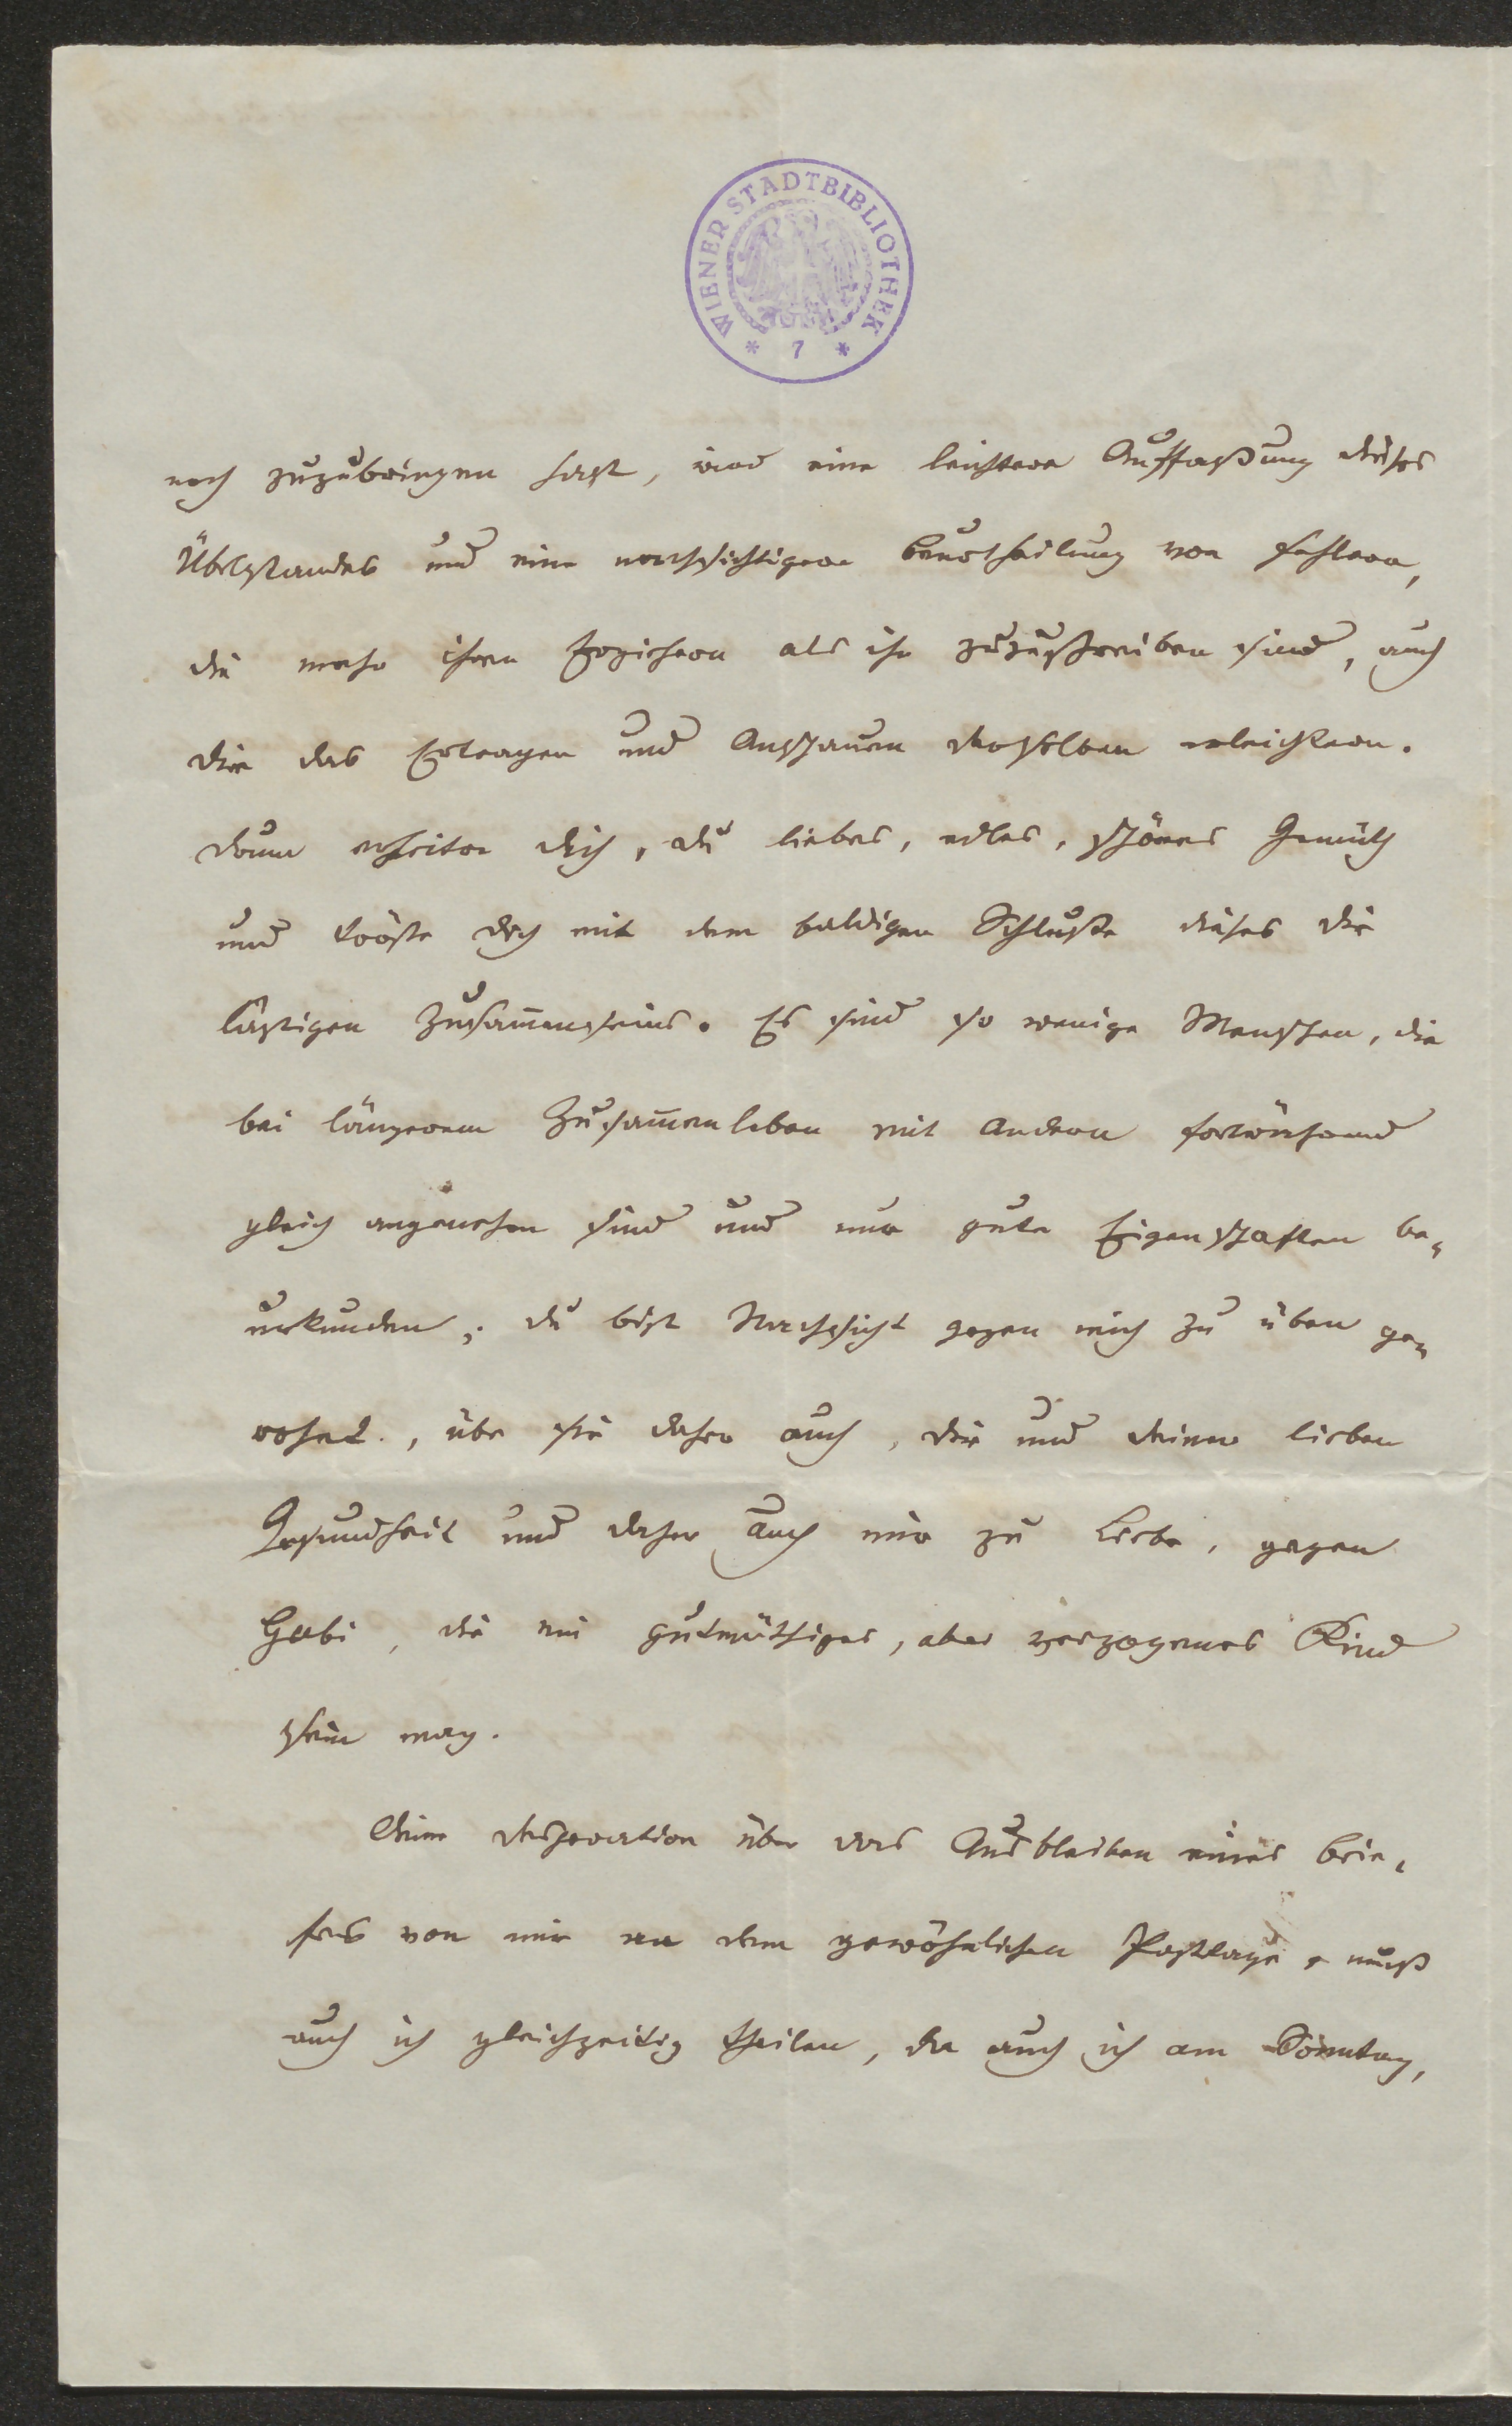 WIENER STADTBIBLIOTHEK
* 7 *
noch zuzubringen hast, wird eine leichtere Auffaßung dieses
Übelstandes und eine nachsichtigere Beurtheilung von Fehlern,
die mehr ihren Erziehern als ihr zuzuschreiben sind, auch
dir das Ertragen und Anschauen derselben erleichtern.
Drum erheitre dich, du liebes, edles, schönes Gemüth
und tröste dich mit dem baldigen Schluße dieses dir
lästigen Zusam̄enseins. Es sind so wenige Menschen, die
bei längerem Zusam̄enleben mit Andern fortwährend
gleich angenehm sind und nur gute Eigenschaften be-
urkunden; du bist Nachsicht gegen mich zu üben ge-
wohnt, übe sie daher auch, dir und deiner lieben
Gesundheit und daher auch mir zu Liebe, gegen
Gabi, die ein gutmüthiges, aber verzogenes Kind
sein mag.
Deine Desperation über das Ausbleiben eines Brie-
fes von mir an dem gewöhnlichen Posttage, muß
auch ich gleichzeitig theilen, da auch ich am Sonntag,